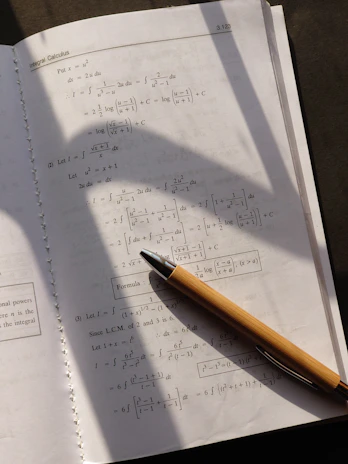 Integral Calculus
5.123
Put x = u²
dx = 2u du
I = ∫ 1/(u³ − u) 2u du = ∫ 2/(u² − 1) du
= 2 1/2 log (u − 1)/(u + 1) + C = log (u − 1)/(u + 1) + C
= log (√x − 1)/(√x + 1) + C
Let I = ∫ √(x + 1)/x dx
Let u² = x + 1
2u du = dx
I = ∫ u/(u² − 1) 2u du = ∫ 2u²/(u² − 1) du
= 2 ∫ [(u² − 1)/(u² − 1) + 1/(u² − 1)] du = 2 ∫ [1 + 1/(u² − 1)] du
= 2 [∫ du + ∫ 1/(u² − 1) du] = 2 [u + 1/2 log (u − 1)/(u + 1)] + C
Formula :
log (x − a)/(x + a) ; (x > a)
onal powers
ere n is the
t the integral
Let I = ∫
Since L.C.M. of 2 and 3 is 6
Let 1 + x = t⁶
dx = 6t⁵ dt
I = ∫ 6t⁵/(t³ − t²) dt = ∫ 6t⁵/(t²(t − 1)) dt
= 6 ∫ (t³ − 1 + 1)/(t − 1) dt
= 6 ∫ [(t³ − 1)/(t − 1) + 1/(t − 1)] dt